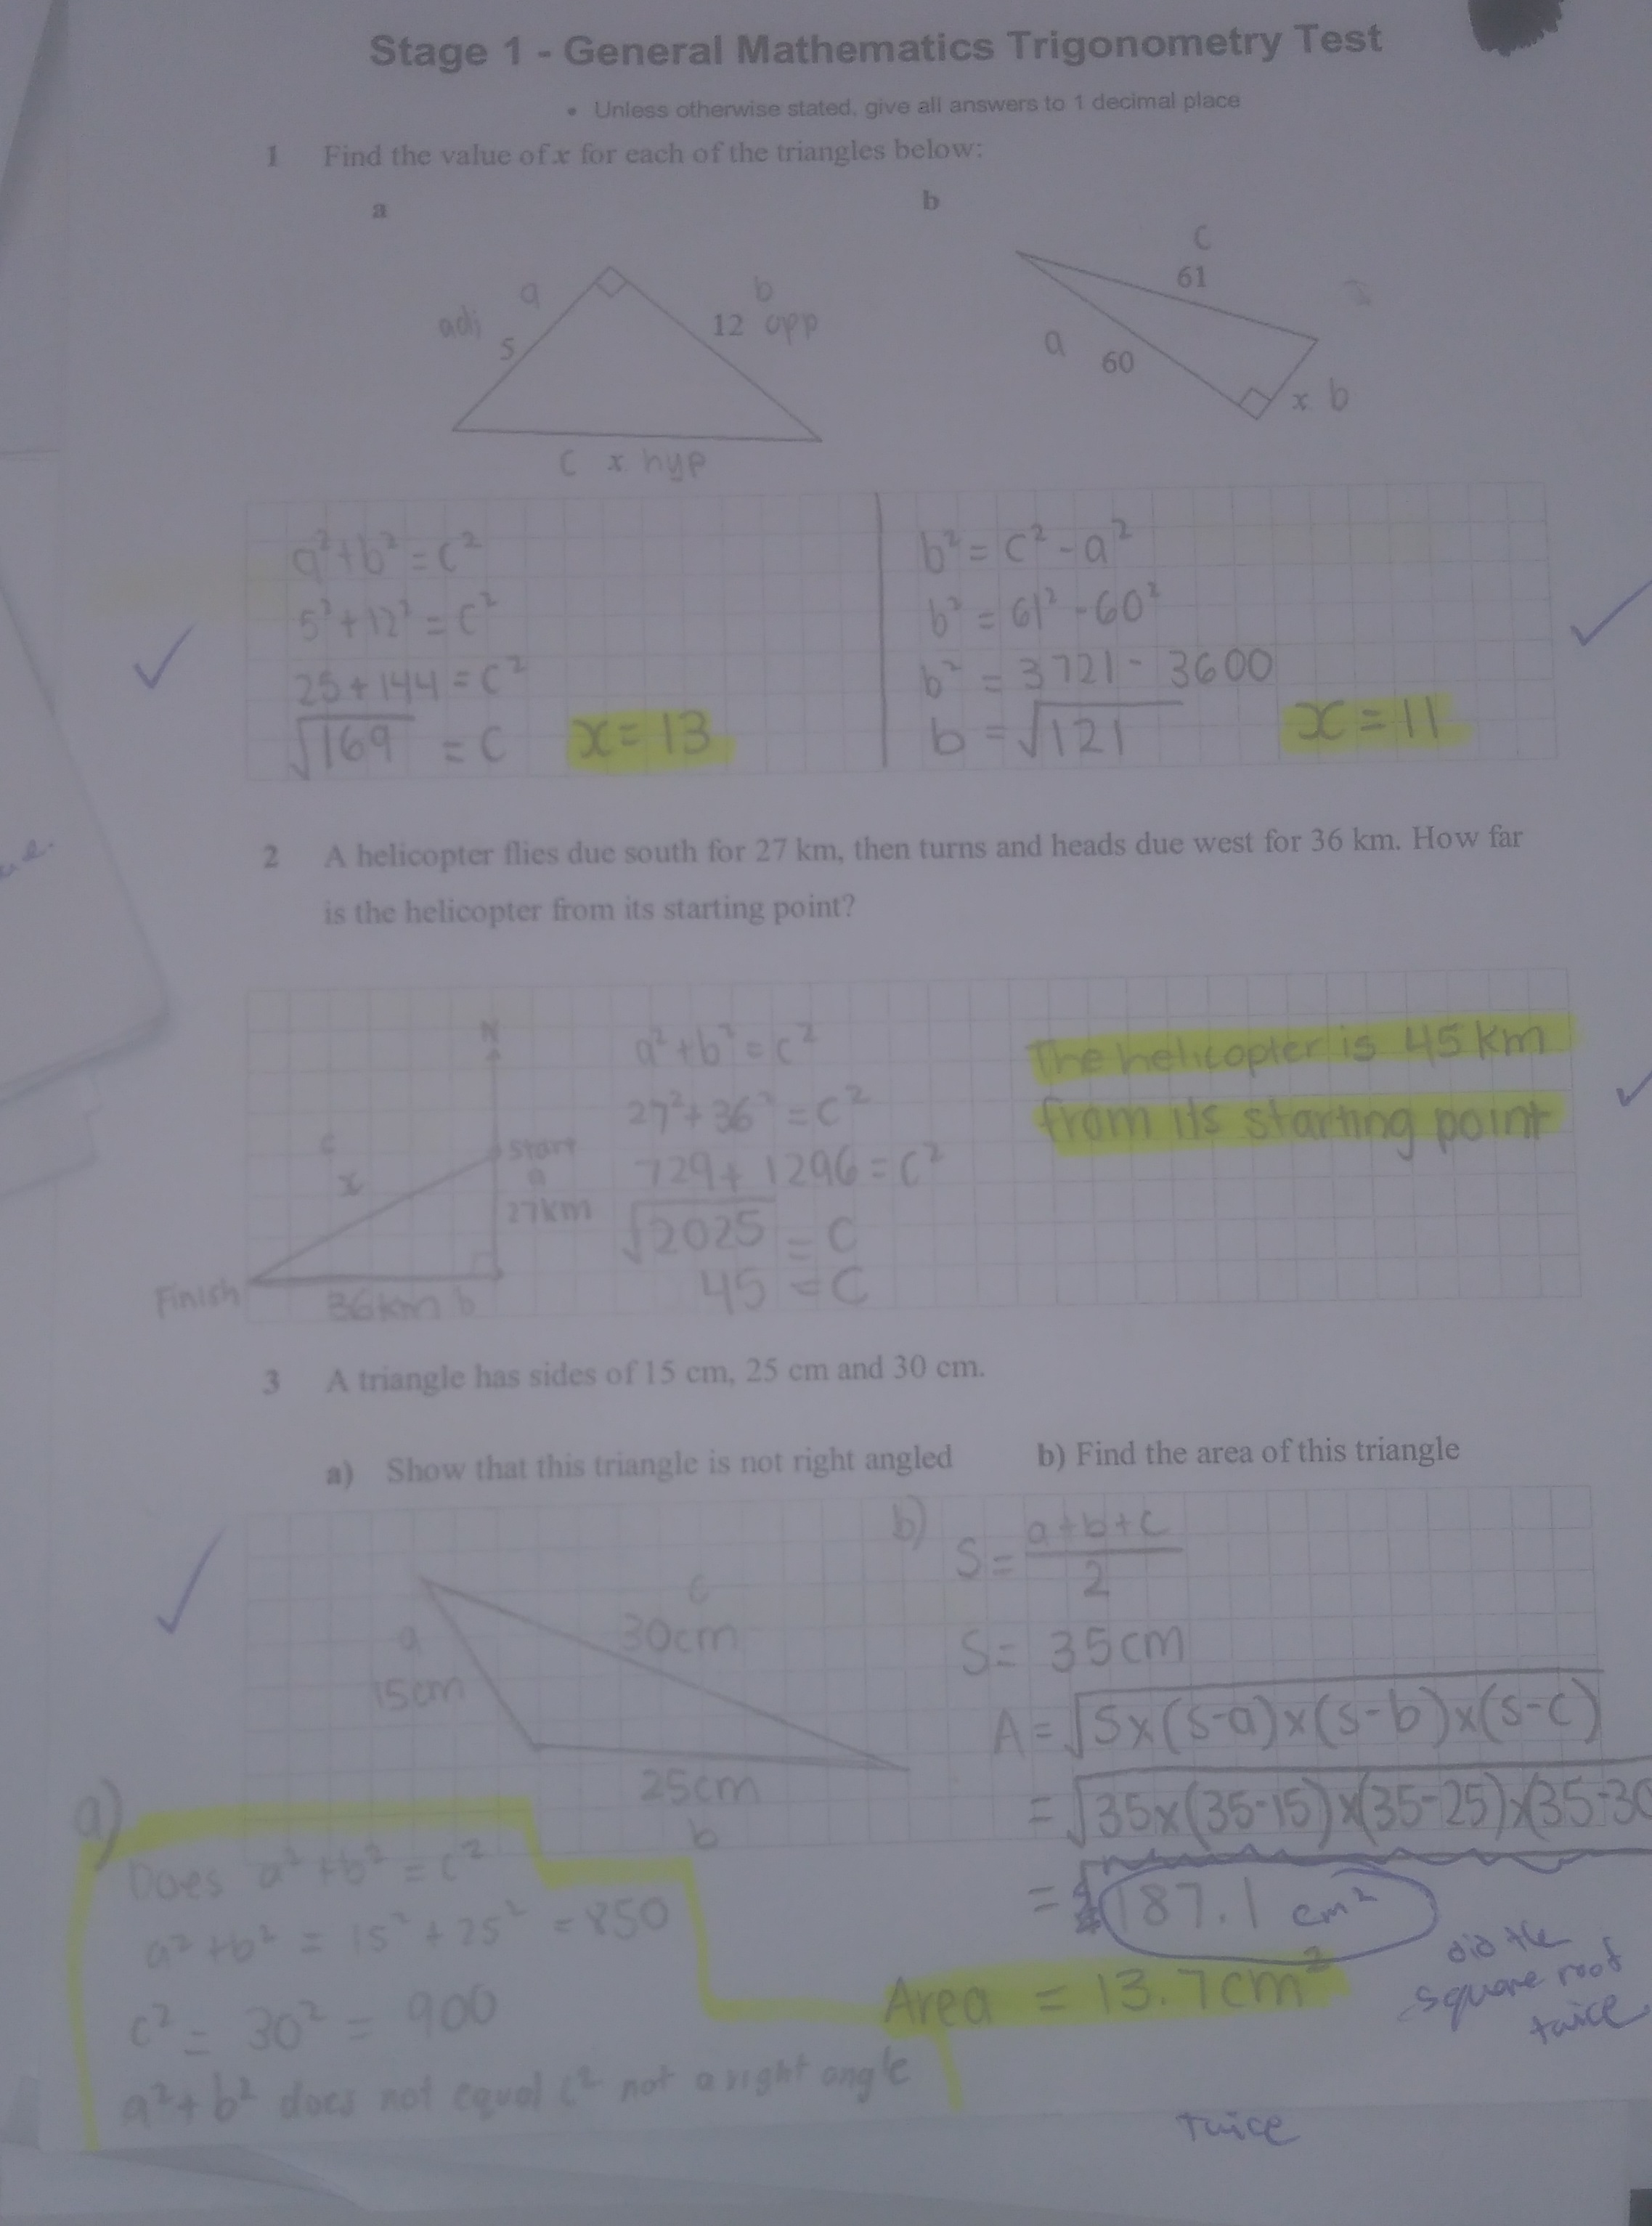 Stage 1 - General Mathematics Trigonometry Test
• Unless otherwise stated, give all answers to 1 decimal place
1 Find the value of x for each of the triangles below:
a
b
a
adj
5
b
12 opp
C x hyp
C
61
a
60
x b
a²+b² = c²
5²+12² = c²
25+144 = c²
√169 = C x = 13
b² = c² - a²
b² = 61² - 60²
b² = 3721 - 3600
b = √121 x = 11
2 A helicopter flies due south for 27 km, then turns and heads due west for 36 km. How far
is the helicopter from its starting point?
N
c
x
Start
a
27km
Finish
36km b
a²+b² = c²
27²+36² = c²
729+1296 = c²
√2025 = C
45 = C
The helicopter is 45km
from its starting point
3 A triangle has sides of 15 cm, 25 cm and 30 cm.
a) Show that this triangle is not right angled
b) Find the area of this triangle
c
30cm
a
15cm
25cm
b
a)
Does a²+b² = c²
a²+b² = 15²+25² = 850
c² = 30² = 900
a²+b² does not equal c² not a right angle
b)
S = a+b+c
2
S = 35cm
A = √S×(s-a)×(s-b)×(s-c)
= √35×(35-15)×(35-25)×(35-30
= 187.1 cm²
Area = 13.7cm²
did the
square root
twice
twice